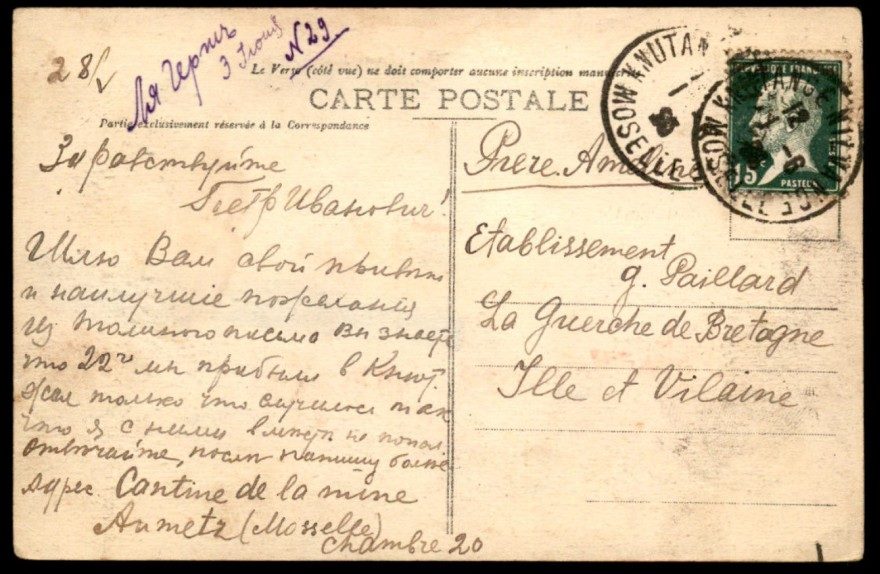 28/V
3 Июня
N 29
Le Verso (côté vue) ne doit comporter aucune inscription manuscrite
CARTE POSTALE
Partie exclusivement réservée à la Correspondance
Здравствуйте
Петр Иванович!
Шлю Вам свой привет
и наилучшие пожелания
из письмо Вы знаете
что 22го мы прибыли в Кнют.
Жаль только что случилось так
что я с ними вместе не попал
отвечайте, после напишу более
Адрес. Cantine de la mine
Aumetz (Mosselle)
chambre 20
Prere.
Etablissement
g. Paillard
La Guerche de Bretagne
Ille et Vilaine
KNUTANGE MOSELLE
KNUTANGE MOSELLE
15
PASTEUR